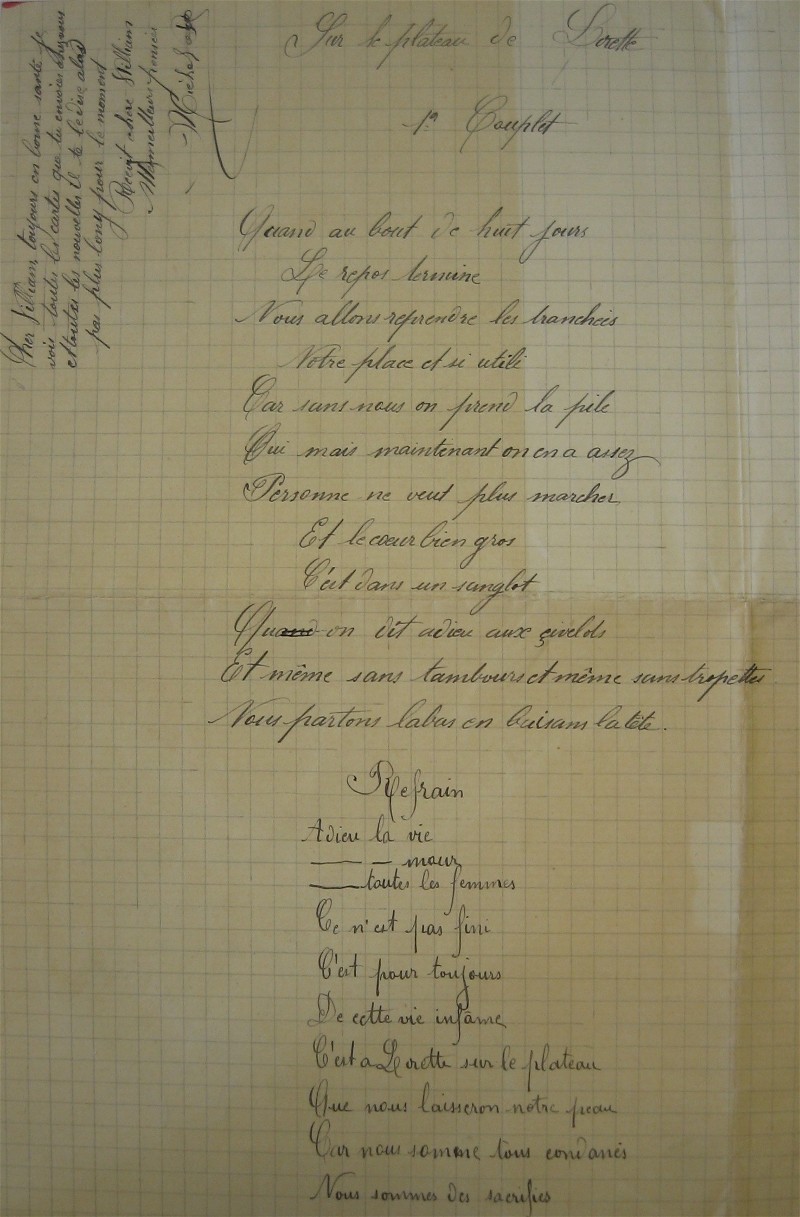 Sur le plateau de Lorette
1er Couplet
Quand au bout de huit jours
Le repos termine
Nous allons reprendre les tranchées
Notre place et si utile
Car sans nous on prend la pile
Oui mais maintenant on en a assez
Personne ne veut plus marcher
Et le cœur bien gros
C'est dans un sanglot
Quand on dit adieu aux çivelots
Et même sans tambours et même sans tropettes
Nous partons labas en baisans la tête.
Refrain
Adieu la vie
—— — mour
—— toutes les femmes
Ce n'est pas fini
C'est pour toujours
De cette vie infâme
C'est a Lorette sur le plateau
Que nous laisseron notre peau
Car nous somme tous condanés
Nous sommes des sacrifies
Cher William, toujours en bonne santé je
vois toutes les cartes que tu envoies chez nous
et toutes les nouvelles
pas plus long pour le moment
Reçoit chère William
Mes meilleurs pensées